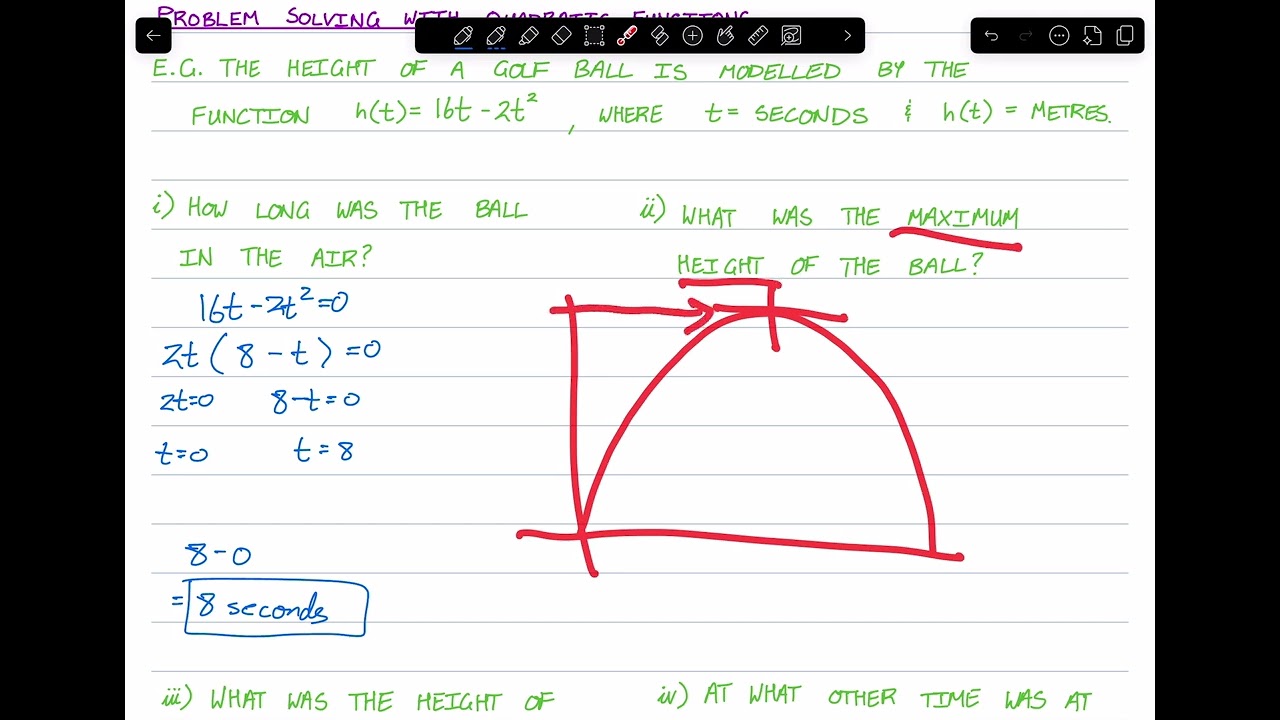 PROBLEM SOLVING WITH QUADRATIC FUNCTIONS
E.G. THE HEIGHT OF A GOLF BALL IS MODELLED BY THE
FUNCTION h(t)= 16t - 2t², WHERE t = SECONDS & h(t) = METRES.
i) HOW LONG WAS THE BALL
IN THE AIR?
16t - 2t² = 0
2t ( 8 - t ) = 0
2t=0 8-t=0
t=0 t = 8
8 - 0
= 8 seconds
ii) WHAT WAS THE MAXIMUM
HEIGHT OF THE BALL?
iii) WHAT WAS THE HEIGHT OF
iv) AT WHAT OTHER TIME WAS AT